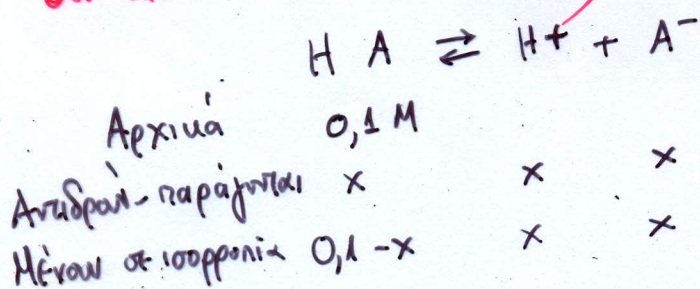 HA ⇌ H+ + A⁻
Αρχικά 0,1 M
Αντιδρούν - παράγονται x x x
Μένουν σε ισορροπία 0,1 - x x x